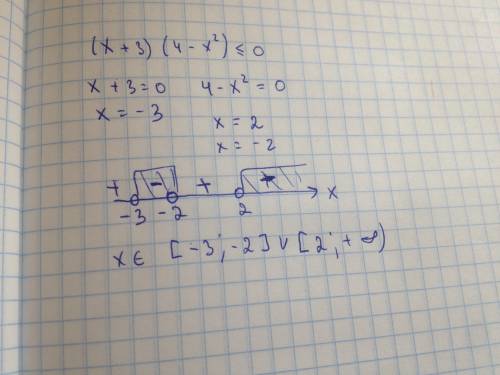 (x + 3) (4 - x²) ≤ 0
x + 3 = 0 4 - x² = 0
x = -3 x = 2
x = -2
+ - + -
-3 -2 2 x
x ∈ [-3; -2] ∪ [2; +∞)